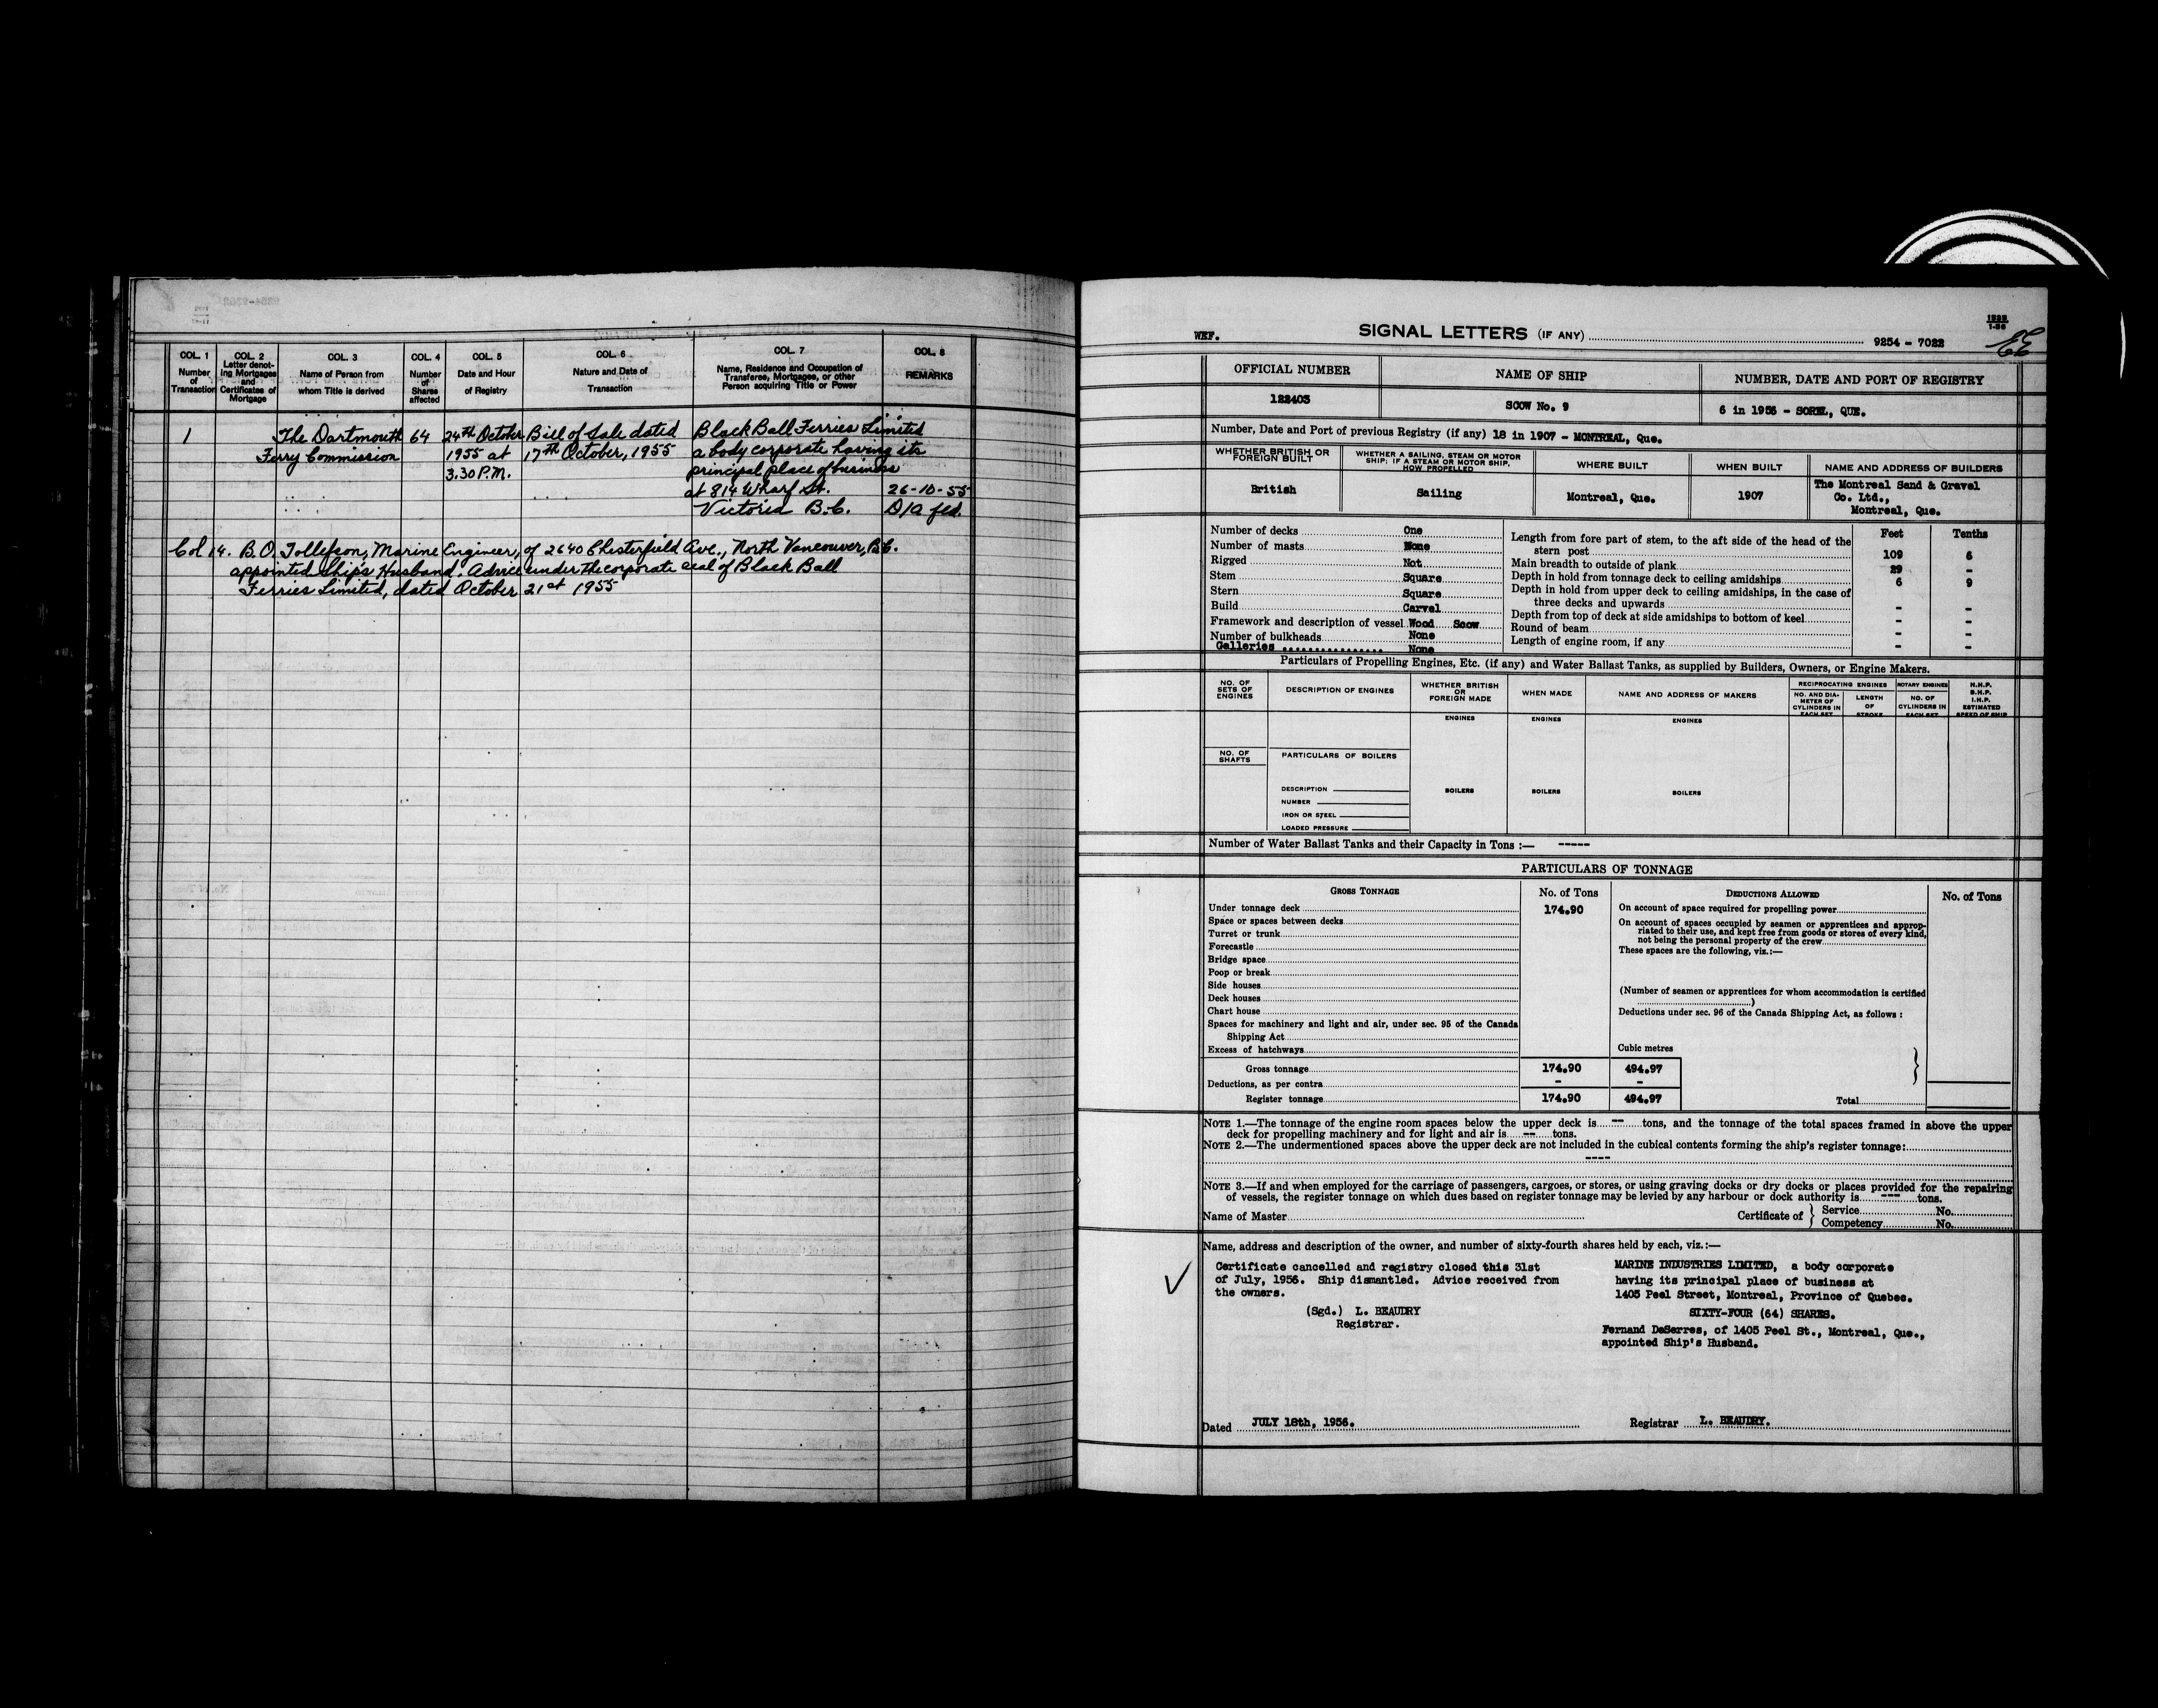 COL. 1 COL. 2 COL. 3 COL. 4 COL. 5 COL. 6 COL. 7 COL. 8
Number of Transaction
Letter denoting Mortgages and Certificates of Mortgage
Name of Person from whom Title is derived
Number of Shares affected
Date and Hour of Registry
Nature and Date of Transaction
Name, Residence and Occupation of Transferee, Mortgagee, or other Person acquiring Title or Power
REMARKS
1 The Dartmouth 64 24th October Bill of Sale dated Black Ball Ferries Limited
Ferry Commission 1955 at 17th October, 1955 a body corporate having its
3.30 P.M. principal place of business
at 814 Wharf St. 26-10-55
Victoria B.C. D/A fld.
Col 14. B.O. Tollefson, Marine Engineer, of 2640 Chesterfield Ave., North Vancouver, B.C.
appointed Ship's Husband. Advice under the corporate seal of Black Ball
Ferries Limited, dated October 21st 1955
WEF. SIGNAL LETTERS (IF ANY) 9254 - 7022
OFFICIAL NUMBER NAME OF SHIP NUMBER, DATE AND PORT OF REGISTRY
122403 SCOW No. 9 6 in 1956 - SOREL, QUE.
Number, Date and Port of previous Registry (if any) 18 in 1907 - MONTREAL, Que.
WHETHER BRITISH OR FOREIGN BUILT
WHETHER A SAILING, STEAM OR MOTOR SHIP; IF A STEAM OR MOTOR SHIP, HOW PROPELLED
WHERE BUILT WHEN BUILT NAME AND ADDRESS OF BUILDERS
British Sailing Montreal, Que. 1907 The Montreal Sand & Gravel
Co. Ltd.,
Montreal, Que.
Number of decks One
Number of masts None
Rigged Not
Stem Square
Stern Square
Build Carvel
Framework and description of vessel Wood Scow
Number of bulkheads None
Galleries None
Feet Tenths
Length from fore part of stem, to the aft side of the head of the
stern post 109 6
Main breadth to outside of plank 29 -
Depth in hold from tonnage deck to ceiling amidships 6 9
Depth in hold from upper deck to ceiling amidships, in the case of
three decks and upwards - -
Depth from top of deck at side amidships to bottom of keel - -
Round of beam - -
Length of engine room, if any - -
Particulars of Propelling Engines, Etc. (if any) and Water Ballast Tanks, as supplied by Builders, Owners, or Engine Makers.
NO. OF SETS OF ENGINES
DESCRIPTION OF ENGINES
WHETHER BRITISH OR FOREIGN MADE
WHEN MADE
NAME AND ADDRESS OF MAKERS
RECIPROCATING ENGINES
NO. AND DIAMETER OF CYLINDERS IN EACH SET
LENGTH OF STROKE
ROTARY ENGINES
NO. OF CYLINDERS IN EACH SET
N.H.P.
B.H.P.
I.H.P.
ESTIMATED
SPEED OF SHIP
ENGINES ENGINES ENGINES
NO. OF SHAFTS
PARTICULARS OF BOILERS
DESCRIPTION BOILERS BOILERS BOILERS
NUMBER
IRON OR STEEL
LOADED PRESSURE
Number of Water Ballast Tanks and their Capacity in Tons :— -----
PARTICULARS OF TONNAGE
GROSS TONNAGE No. of Tons DEDUCTIONS ALLOWED No. of Tons
Under tonnage deck 174.90
Space or spaces between decks
Turret or trunk
Forecastle
Bridge space
Poop or break
Side houses
Deck houses
Chart house
Spaces for machinery and light and air, under sec. 95 of the Canada
Shipping Act
Excess of hatchways
Cubic metres
Gross tonnage 174.90 494.97
Deductions, as per contra - -
Register tonnage 174.90 494.97
On account of space required for propelling power
On account of spaces occupied by seamen or apprentices and approp-
riated to their use, and kept free from goods or stores of every kind,
not being the personal property of the crew
These spaces are the following, viz.:—
(Number of seamen or apprentices for whom accommodation is certified
)
Deductions under sec. 96 of the Canada Shipping Act, as follows :
Total
NOTE 1.—The tonnage of the engine room spaces below the upper deck is -- tons, and the tonnage of the total spaces framed in above the upper
deck for propelling machinery and for light and air is -- tons.
NOTE 2.—The undermentioned spaces above the upper deck are not included in the cubical contents forming the ship's register tonnage:
----
NOTE 3.—If and when employed for the carriage of passengers, cargoes, or stores, or using graving docks or dry docks or places provided for the repairing
of vessels, the register tonnage on which dues based on register tonnage may be levied by any harbour or dock authority is --- tons.
Name of Master Certificate of { Service No.
Competency No.
Name, address and description of the owner, and number of sixty-fourth shares held by each, viz.:—
Certificate cancelled and registry closed this 31st
of July, 1956. Ship dismantled. Advice received from
the owners.
(Sgd.) L. BEAUDRY
Registrar.
MARINE INDUSTRIES LIMITED, a body corporate
having its principal place of business at
1405 Peel Street, Montreal, Province of Quebec.
SIXTY-FOUR (64) SHARES.
Fernand DeSerres, of 1405 Peel St., Montreal, Que.,
appointed Ship's Husband.
Dated JULY 18th, 1956. Registrar L. BEAUDRY.